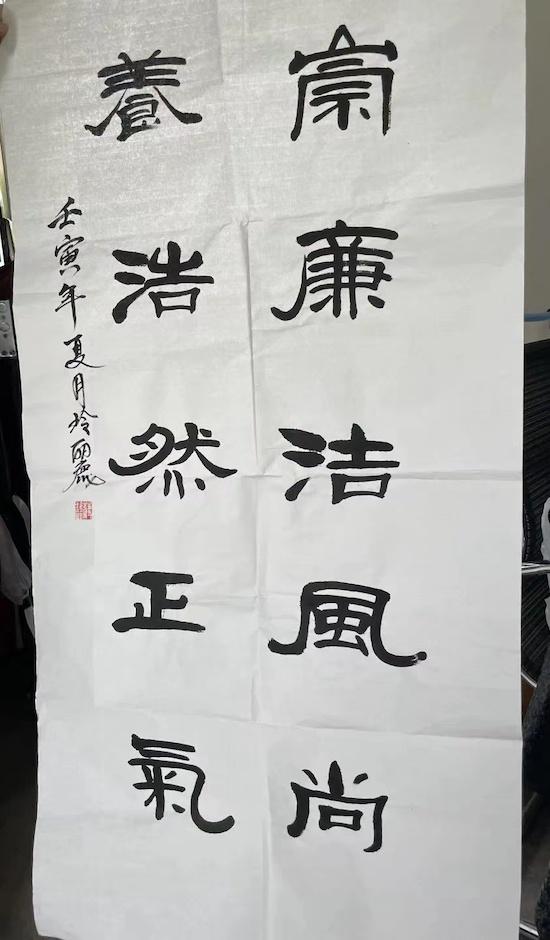 崇廉洁風尚
養浩然正氣
壬寅年夏月玲麗